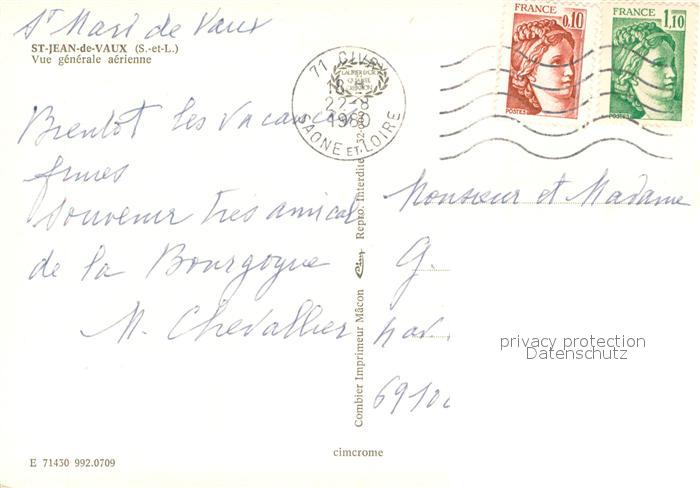 St Mard de Vaux
ST-JEAN-de-VAUX (S.-et-L.)
Vue générale aérienne
FRANCE
0,10
POSTES
FRANCE
1,10
POSTES
71 GIVRY
18 H
22-8
1980
SAONE ET LOIRE
Bientot les vacances
souvenir très amical
de la Bourgogne
M. Chevallier
Combier Imprimeur Mâcon Repro. Interdite
Monsieur et Madame
G.
privacy protection
Datenschutz
6910
cimcrome
E 71430 992.0709